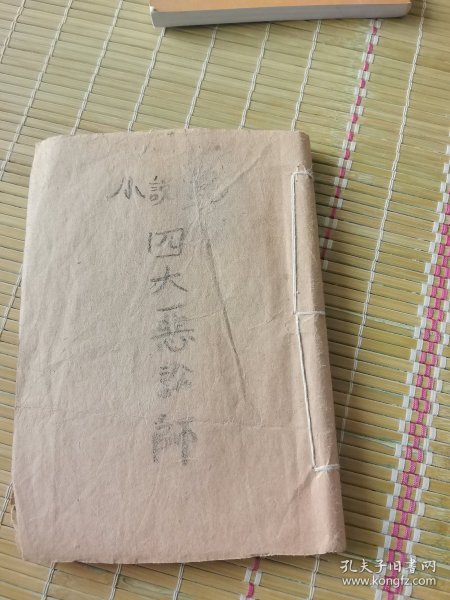 小説
四大惡訟師
孔夫子旧书网
www.kongfz.com